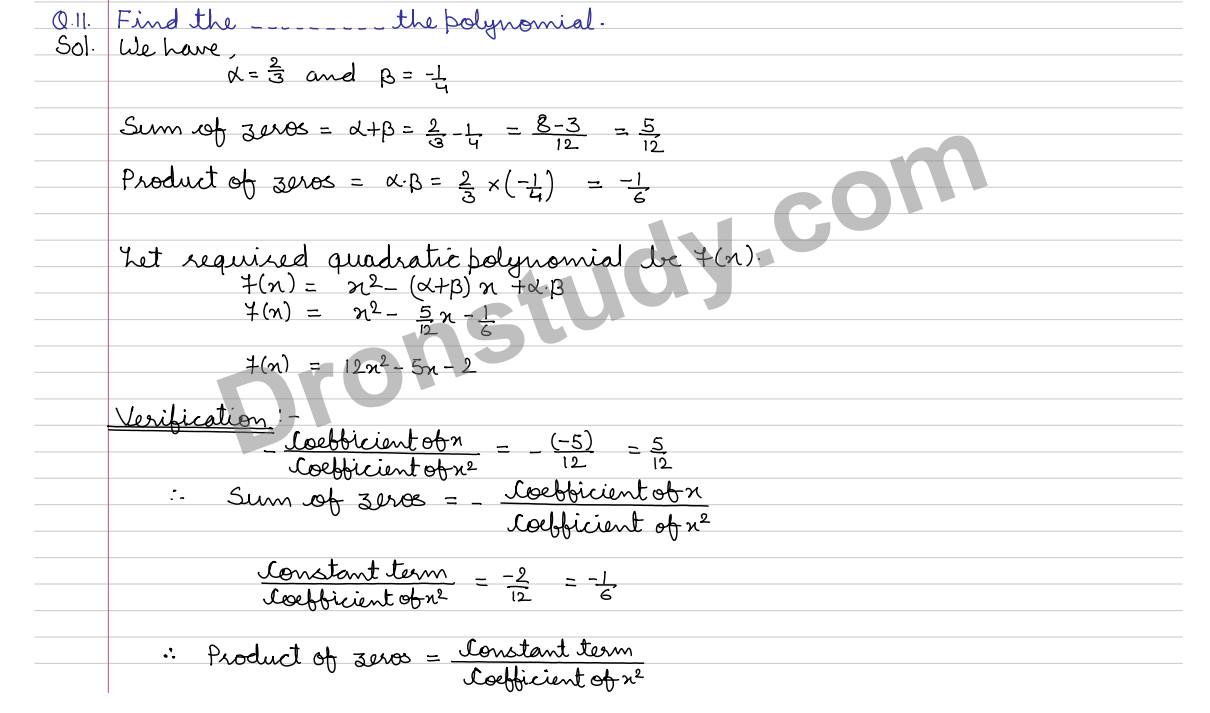 Q.11. Find the --------- the polynomial.
Sol. We have,
α = 2/3 and β = -1/4
Sum of zeros = α+β = 2/3 - 1/4 = 8-3/12 = 5/12
Product of zeros = α.β = 2/3 × (-1/4) = -1/6
Let required quadratic polynomial be f(x).
f(x) = x² - (α+β) x + α.β
f(x) = x² - 5/12 x - 1/6
f(x) = 12x² - 5x - 2
Verification :-
- Coefficient of x / Coefficient of x² = - (-5)/12 = 5/12
∴ Sum of zeros = - Coefficient of x / Coefficient of x²
Constant term / Coefficient of x² = -2/12 = -1/6
∴ Product of zeros = Constant term / Coefficient of x²
Dronstudy.com